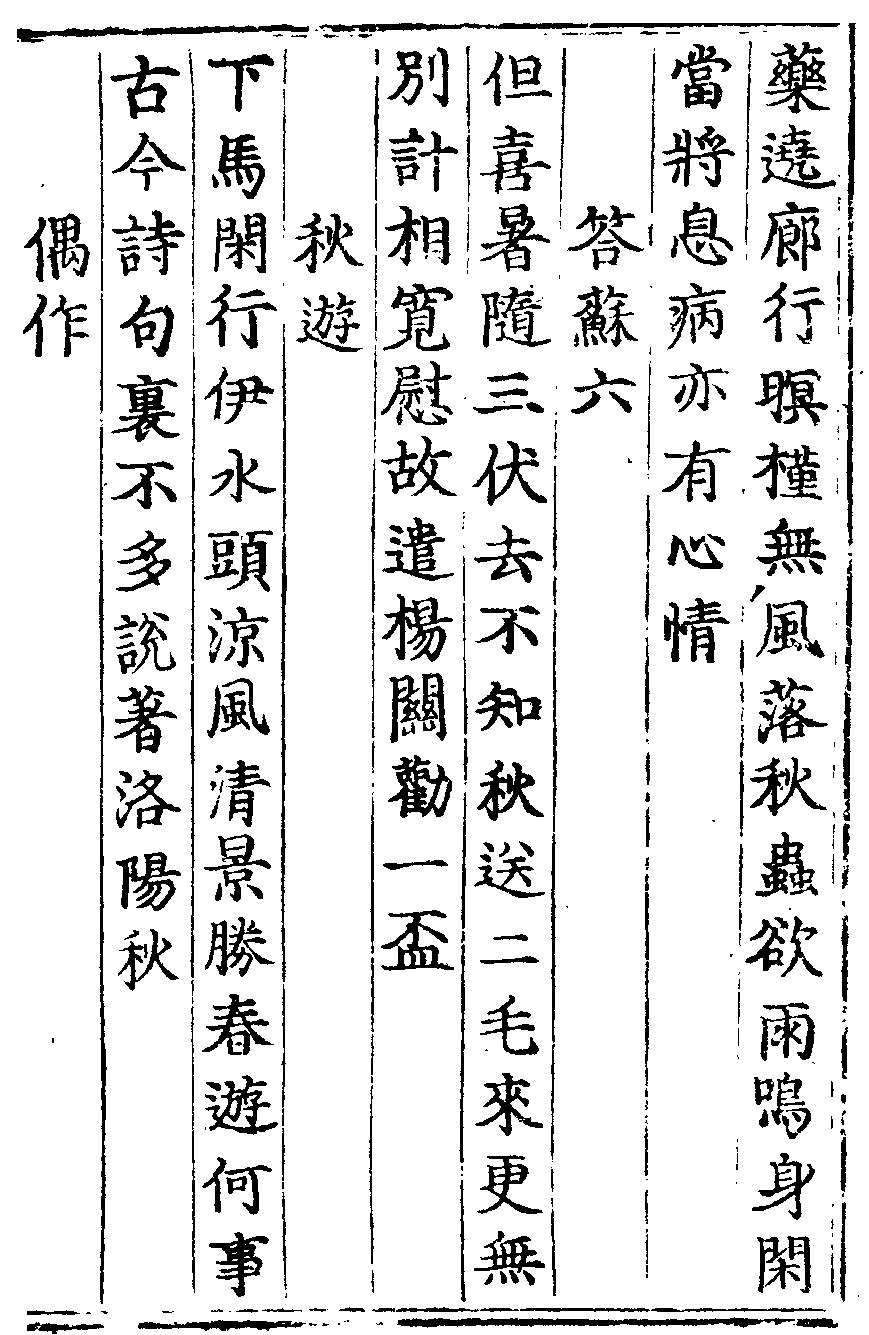 藥遶廊行暝槿無風落秋蟲欲雨鳴身閑
當將息病亦有心情
答蘇六
但喜暑隨三伏去不知秋送二毛來更無
別計相寬慰故遣楊關勸一盃
秋遊
下馬閑行伊水頭涼風清景勝春遊何事
古今詩句裏不多說著洛陽秋
偶作